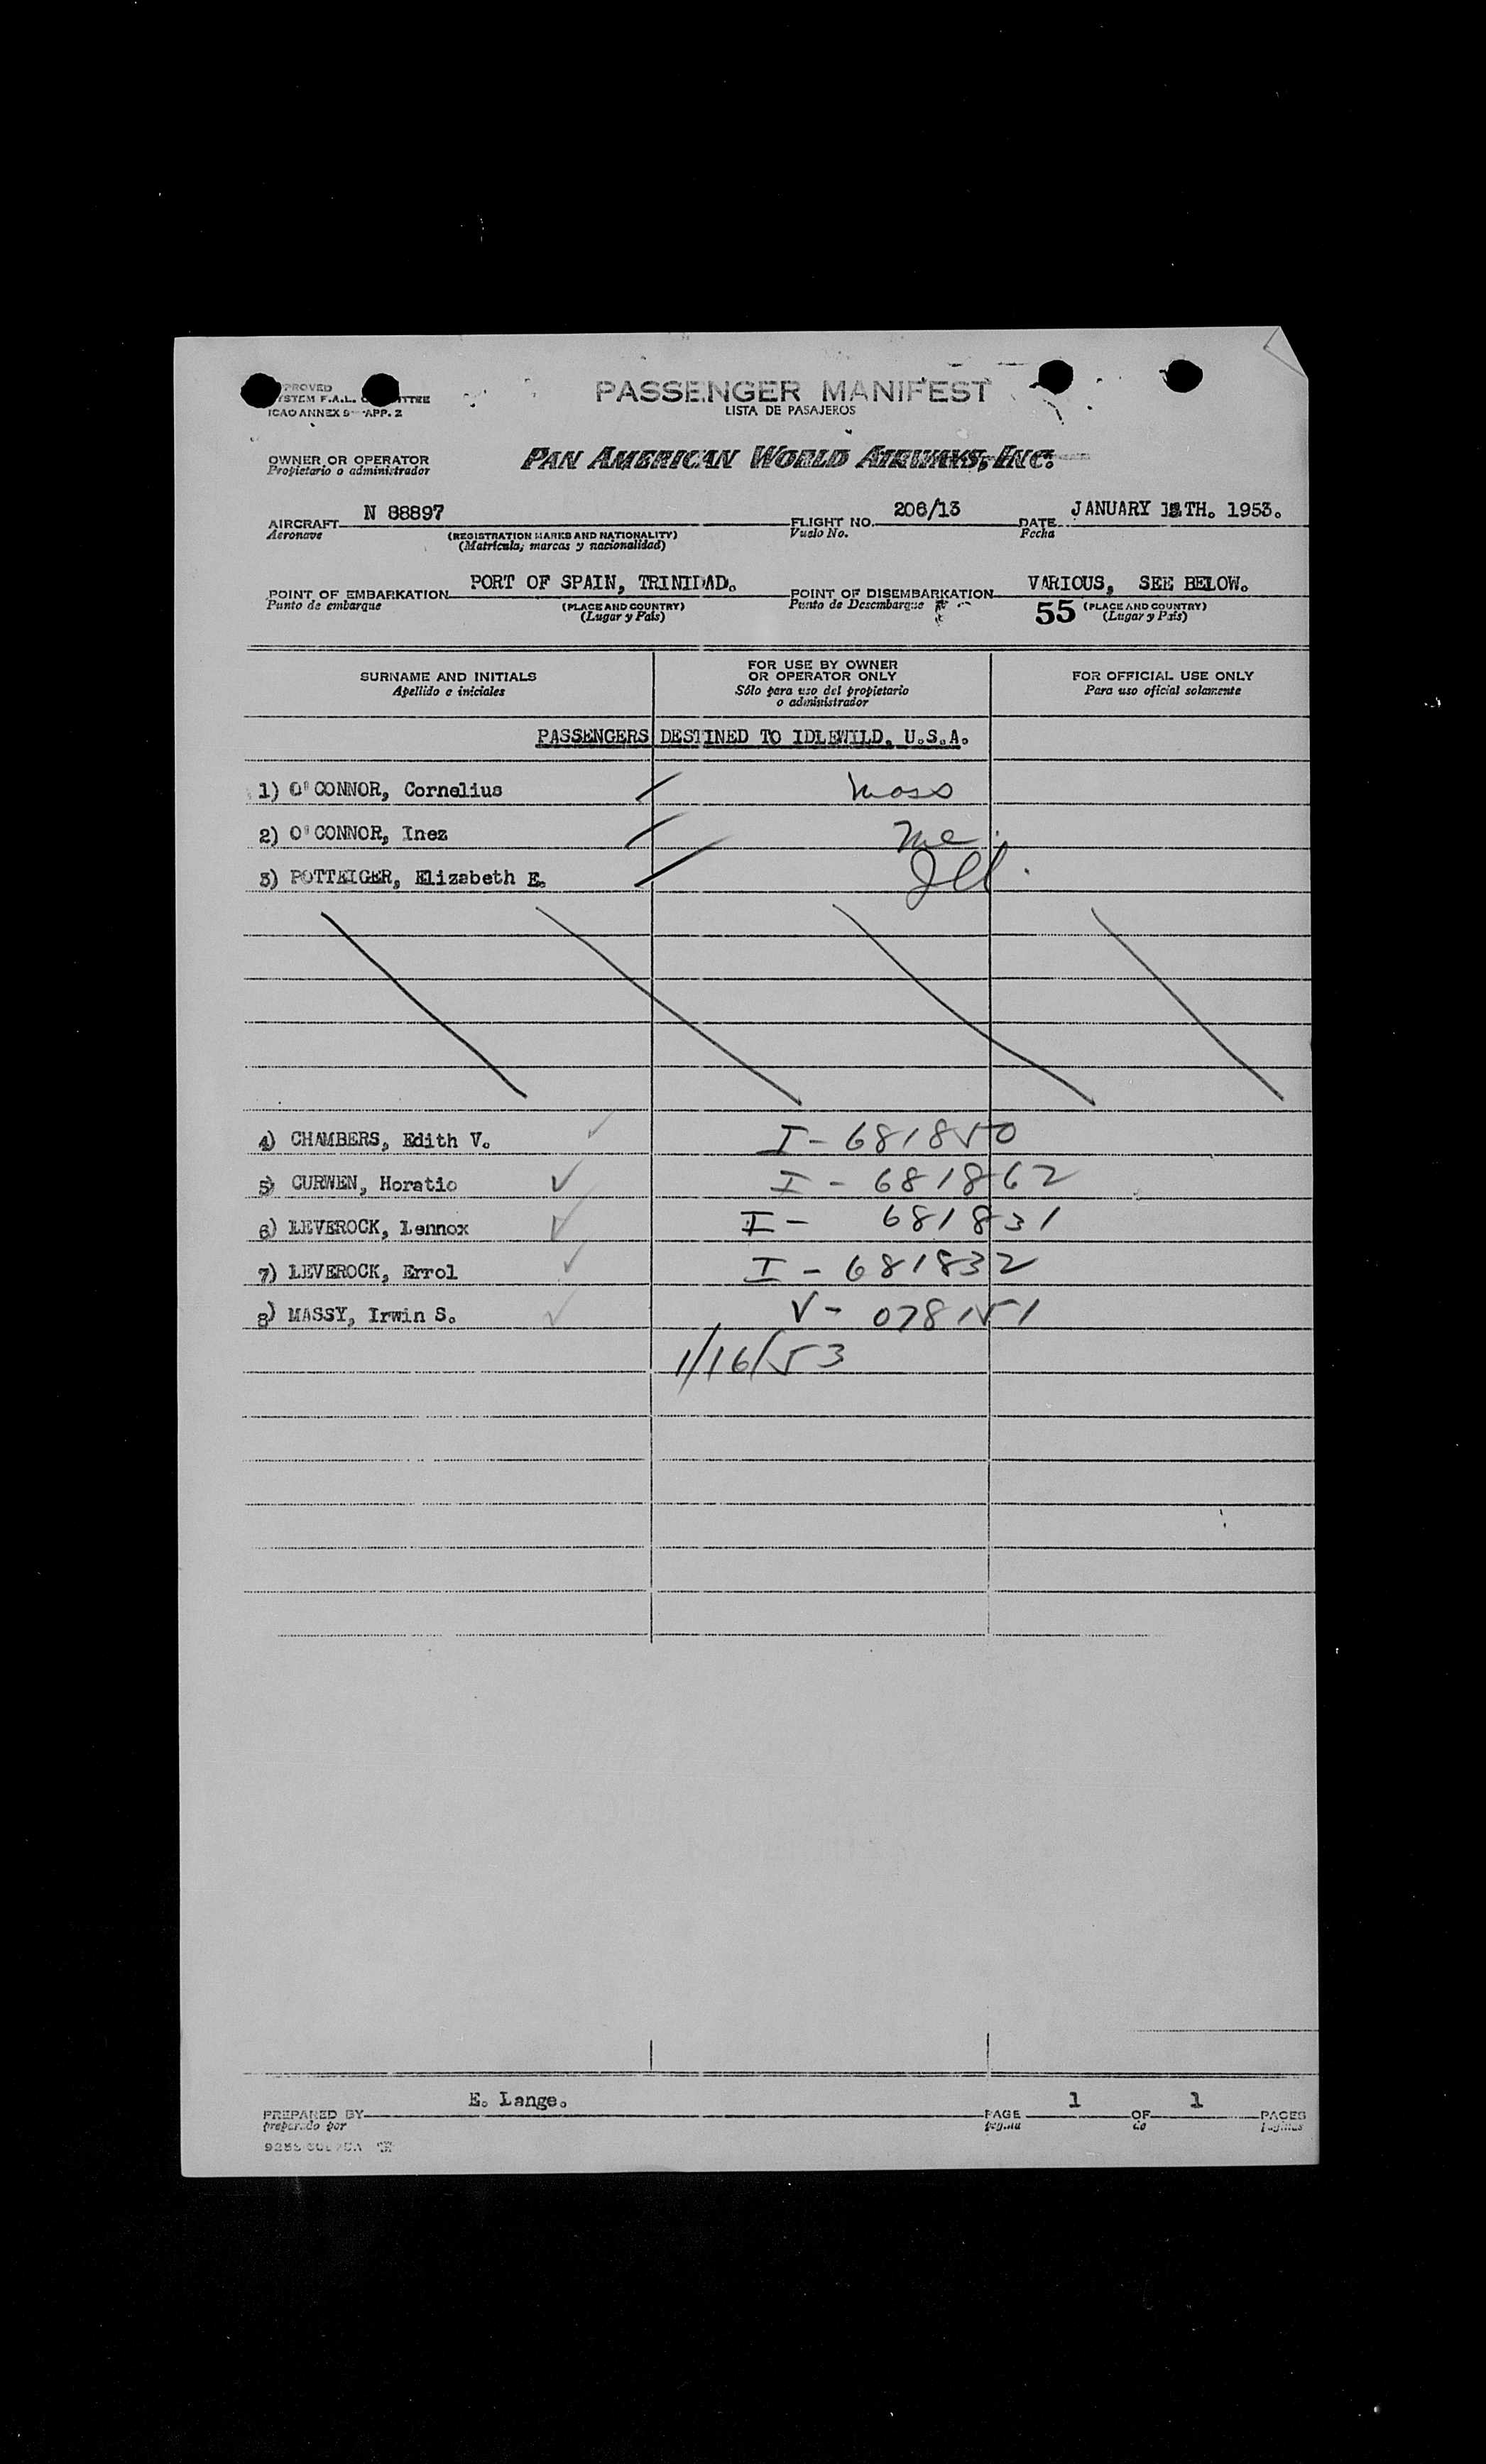 PROVED
YSTEM F.A.L. C MITTEE
ICAO ANNEX 9 APP. 2
PASSENGER MANIFEST
LISTA DE PASAJEROS
OWNER OR OPERATOR
Propietario o administrador
PAN AMERICAN WORLD AIRWAYS, INC.
AIRCRAFT N 88897 FLIGHT NO. 206/13 DATE JANUARY TH. 1953.
Aeronave (REGISTRATION MARKS AND NATIONALITY) Vuelo No. Fecha
(Matrícula, marcas y nacionalidad)
POINT OF EMBARKATION PORT OF SPAIN, TRINIDAD. POINT OF DISEMBARKATION VARIOUS, SEE BELOW.
Punto de embarque (PLACE AND COUNTRY) Punto de Desembarque 55 (PLACE AND COUNTRY)
(Lugar y País) (Lugar y País)
SURNAME AND INITIALS
Apellido e iniciales
FOR USE BY OWNER
OR OPERATOR ONLY
Sólo para uso del propietario
o administrador
FOR OFFICIAL USE ONLY
Para uso oficial solamente
PASSENGERS DESTINED TO IDLEWILD, U.S.A.
1) O'CONNOR, Cornelius Mass
2) O'CONNOR, Inez
3) POTTEIGER, Elizabeth E. Ill.
4) CHAMBERS, Edith V. I - 681850
5) CURWEN, Horatio I - 681862
6) LEVEROCK, Lennox I - 681831
7) LEVEROCK, Errol I - 681832
8) MASSY, Irwin S. V - 078151
1/16/53
PREPARED BY E. Lange. PAGE 1 OF 1 PAGES
preparado por página de páginas